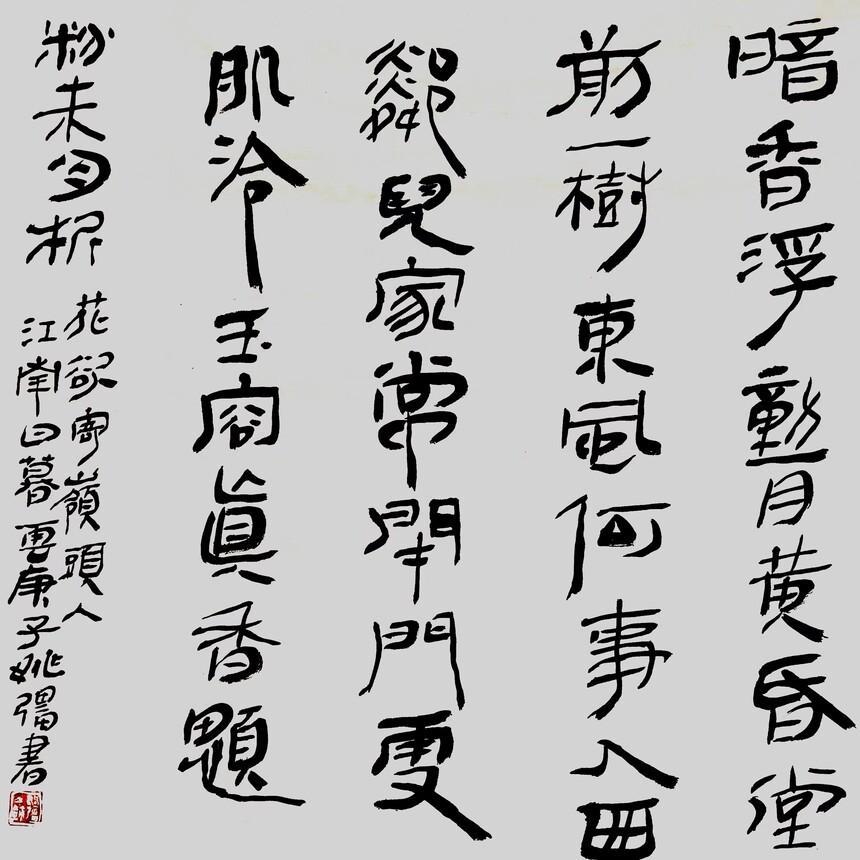 暗香浮動月黄昏堂
前一樹東風何事入西
鄰兒家常閉門雪
肌冷玉容眞香顋
粉未勻折花欲寄嶺頭人
江南日暮雲庚子姚彊書